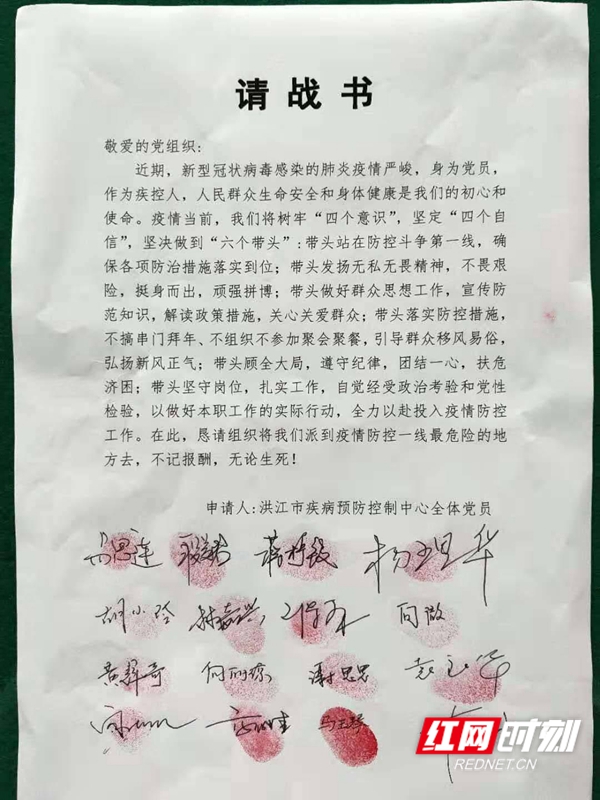 请战书
敬爱的党组织:
近期，新型冠状病毒感染的肺炎疫情严峻，身为党员，
作为疾控人，人民群众生命安全和身体健康是我们的初心和
使命。疫情当前，我们将树牢“四个意识”，坚定“四个自
信”，坚决做到“六个带头”:带头站在防控斗争第一线，确
保各项防治措施落实到位；带头发扬无私无畏精神，不畏艰
险，挺身而出，顽强拼博；带头做好群众思想工作，宣传防
范知识，解读政策措施，关心关爱群众；带头落实防控措施，
不搞串门拜年、不组织不参加聚会聚餐，引导群众移风易俗，
弘扬新风正气；带头顾全大局，遵守纪律，团结一心，扶危
济困；带头坚守岗位，扎实工作，自觉经受政治考验和党性
检验，以做好本职工作的实际行动，全力以赴投入疫情防控
工作。在此，恳请组织将我们派到疫情防控一线最危险的地
方去，不记报酬，无论生死！
申请人:洪江市疾病预防控制中心全体党员
胡小玲 向微
谢思思
马玉琴
红网时刻
REDNET.CN